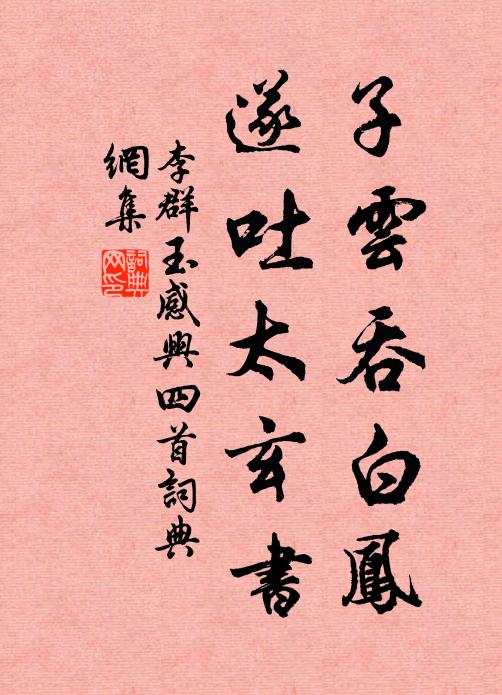 子雲吞白鳳
遂吐太玄書
李群玉感興四首詞典
網集
詞典
网印